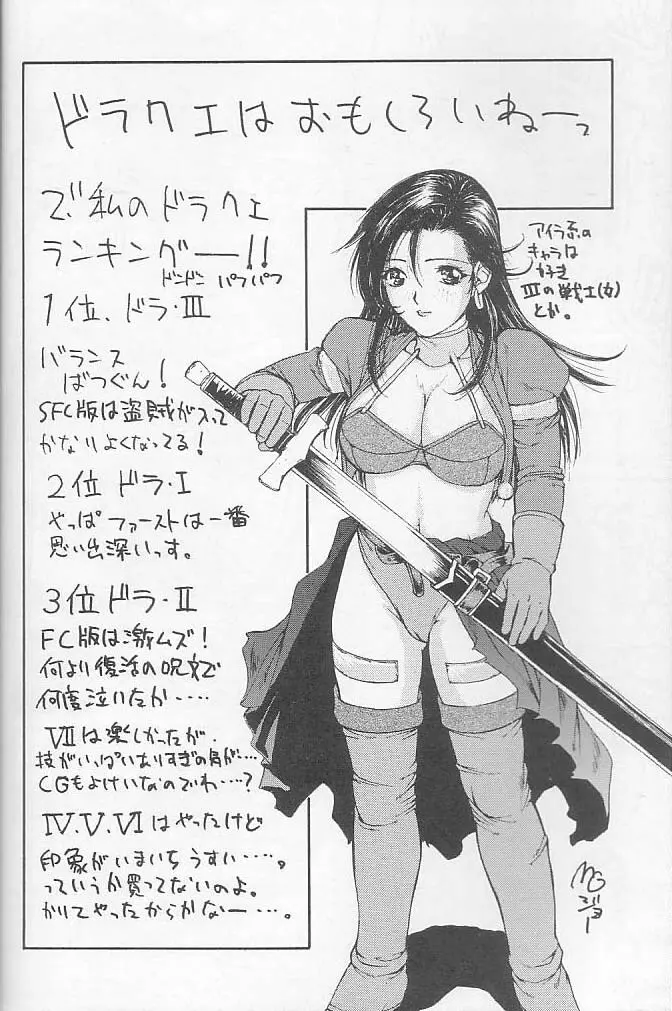 ドラクエはおもしろいねーっ
で、私のドラクエ
ランキングー!!
ドンドン パフパフ
1位、ドラ・III
バランス
ばつぐん!
SFC版は盗賊が入って
かなりよくなってる!
2位 ドラ・I
やっぱファーストは一番
思い出深いっす。
3位 ドラ・II
FC版は激ムズ!
何より復活の呪文で
何度泣いたか‥‥
VIIは楽しかったが、
技がいっぱいありすぎの気が‥‥
CGもよけいなのでわ‥‥?
IV.V.VIはやったけど
印象がいまいちうすい‥‥。
っていうか買ってないのよ。
かりてやったからかなー‥‥。
アイラ系の
キャラは
好き
IIIの戦士(女)
とか。
ジョー